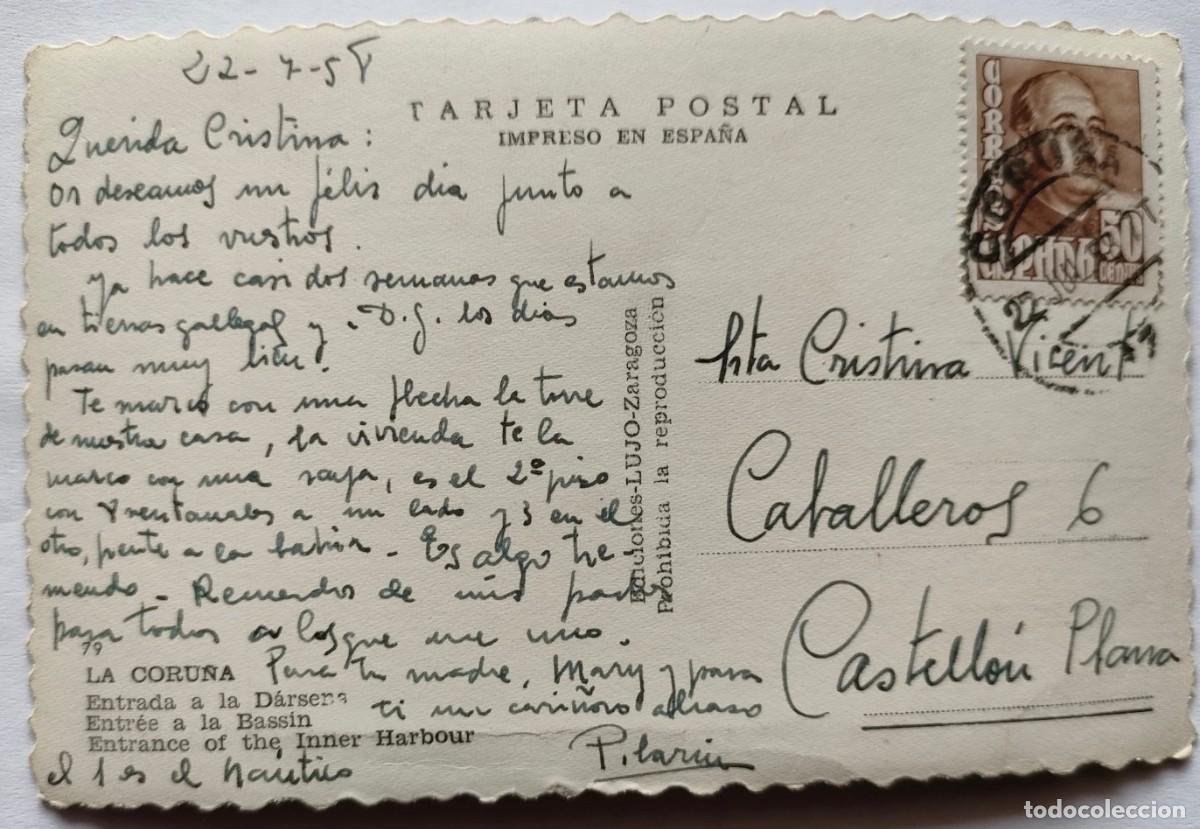 22-7-58
TARJETA POSTAL
IMPRESO EN ESPAÑA
Querida Cristina:
os deseamos un félis dia junto a
todos los vuestros.
ya hace casi dos semanas que estamos
en tierras gallegas y . D.g. los dias
pasan muy bien.
Te marco con una flecha la torre
de nuestra casa, la vivienda te la
marco con una raya, es el 2º piso
con ventanales a un lado y 3 en el
otro, frente a la bahia - Es algo tre-
mendo - Recuerdos de mis padres
para todos a los que me uno.
Para tu madre, Mary y para
ti un cariñoso abrazo
Pilarin
79
LA CORUÑA
Entrada a la Dársena
Entrée a la Bassin
Entrance of the Inner Harbour
el 1 es el Náutico
Ediciones-LUJO-Zaragoza
Prohibida la reproducción
CORREOS
ESPAÑA
50
CENTS
Srta Cristina Vicent
Caballeros 6
Castellón Plana
todocoleccion